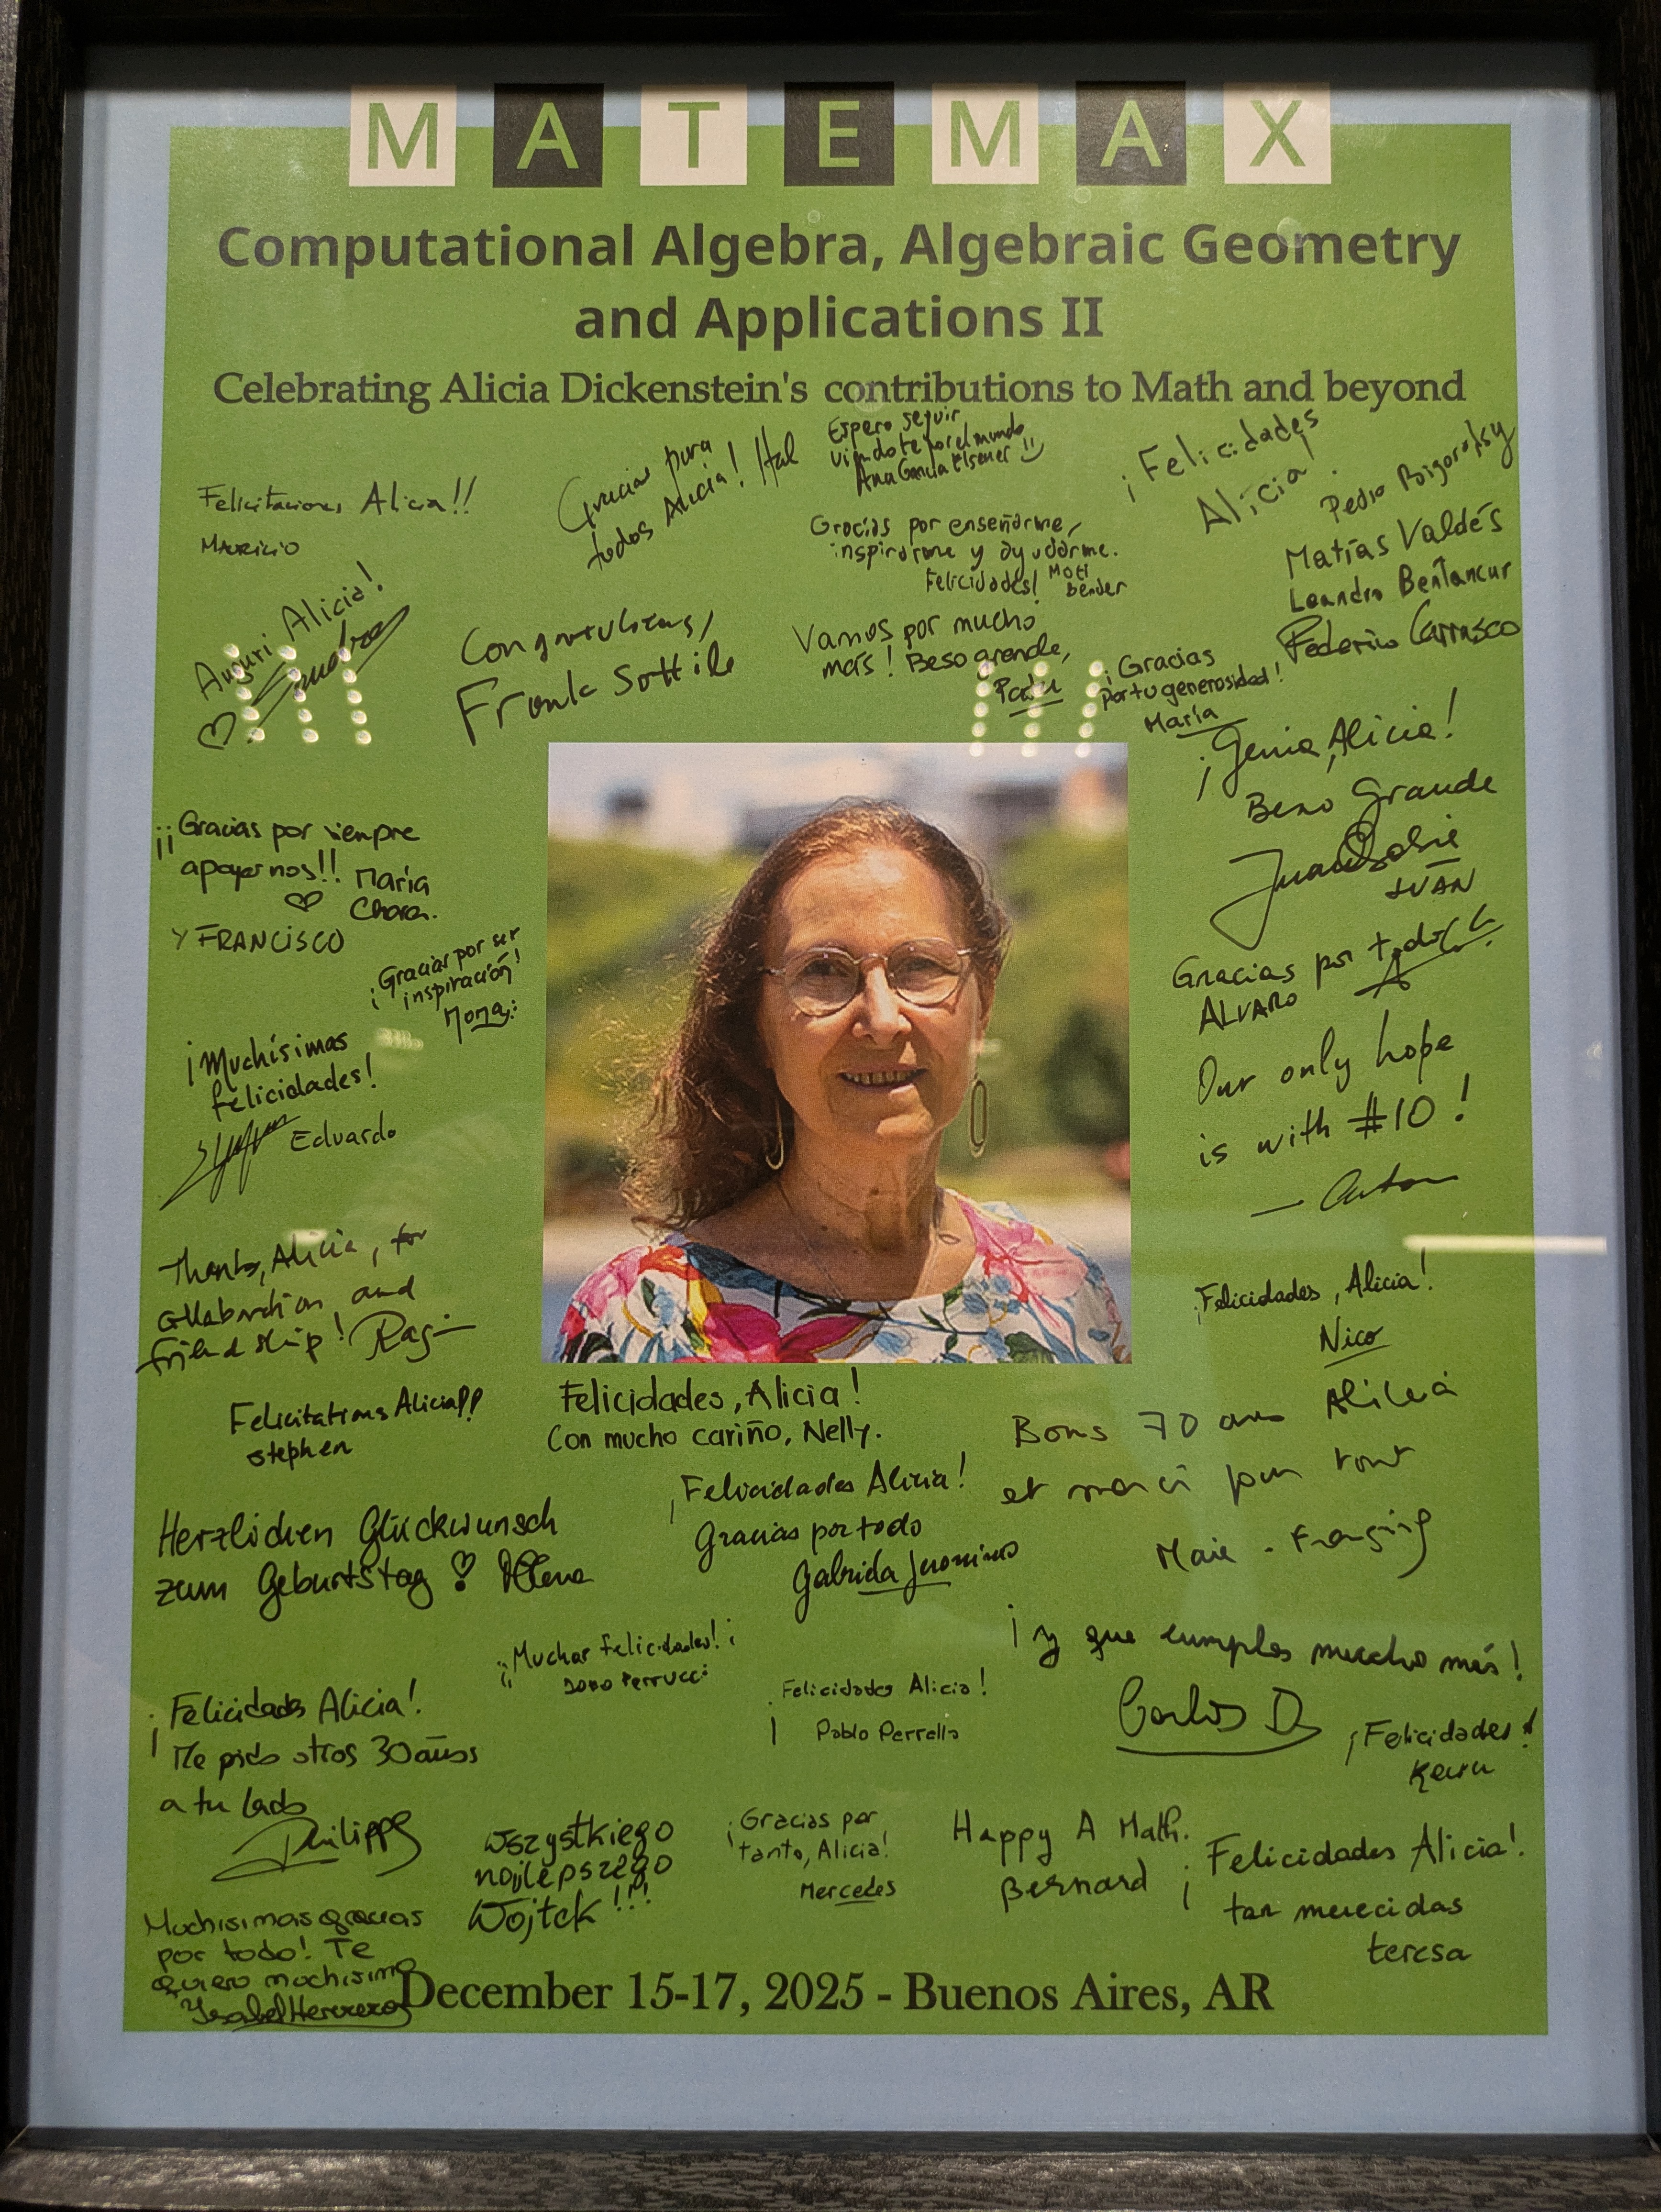 MATEMAX
Computational Algebra, Algebraic Geometry
and Applications II
Celebrating Alicia Dickenstein's contributions to Math and beyond
Felicitaciones Alicia!!
Mauricio
Gracias para
todos Alicia! Hal
Espero seguir
viendote por el mundo
Ana Garcia Elsener
¡Felicidades
Alicia!
Pedro
Matías Valdés
Leandro Bentancur
Federico Carrasco
Gracias por enseñarme,
inspirarme y ayudarme.
Felicidades! Mati
Bender
Auguri Alicia!
Sandra
Congratulations,
Frank Sottile
Vamos por mucho
más! Beso grande,
¡Gracias
por tu generosidad!
María
¡Genia, Alicia!
Beso Grande
Juan
IVÁN
¡¡Gracias por siempre
apoyarnos!! María
Chara.
Y FRANCISCO
¡Gracias por ser
inspiración!
Gracias por todo
ALVARO
¡Muchísimas
felicidades!
Eduardo
Our only hope
is with #10!
— Anton
Thanks, Alicia, for
collaboration and
friendship! Ragni
¡Felicidades, Alicia!
Nico
Felicitations Alicia!!
stephen
Felicidades, Alicia!
Con mucho cariño, Nelly.
Bons 70 ans Alicia
et merci pour tout
Marie-Françoise
Herzlichen Glückwunsch
zum Geburtstag!
¡Felicidades Alicia!
Gracias por todo
Gabriela Jeronimo
¡¡Muchas Felicidades!!
Perrucci
¡y que cumplas mucho más!
Carlos D
¡Felicidades Alicia!
Pablo Perrella
¡Felicidades!
¡Felicidades Alicia!
Me pido otros 30 años
a tu lado
Philippe
Wszystkiego
najlepszego
Wojtek!!!
¡Gracias por
tanto, Alicia!
Mercedes
Happy A Math.
Bernard
¡Felicidades Alicia!
tan merecidas
teresa
Muchisimas gracias
por todo! Te
quiero muchisimo
Isabel Herrero
December 15-17, 2025 - Buenos Aires, AR